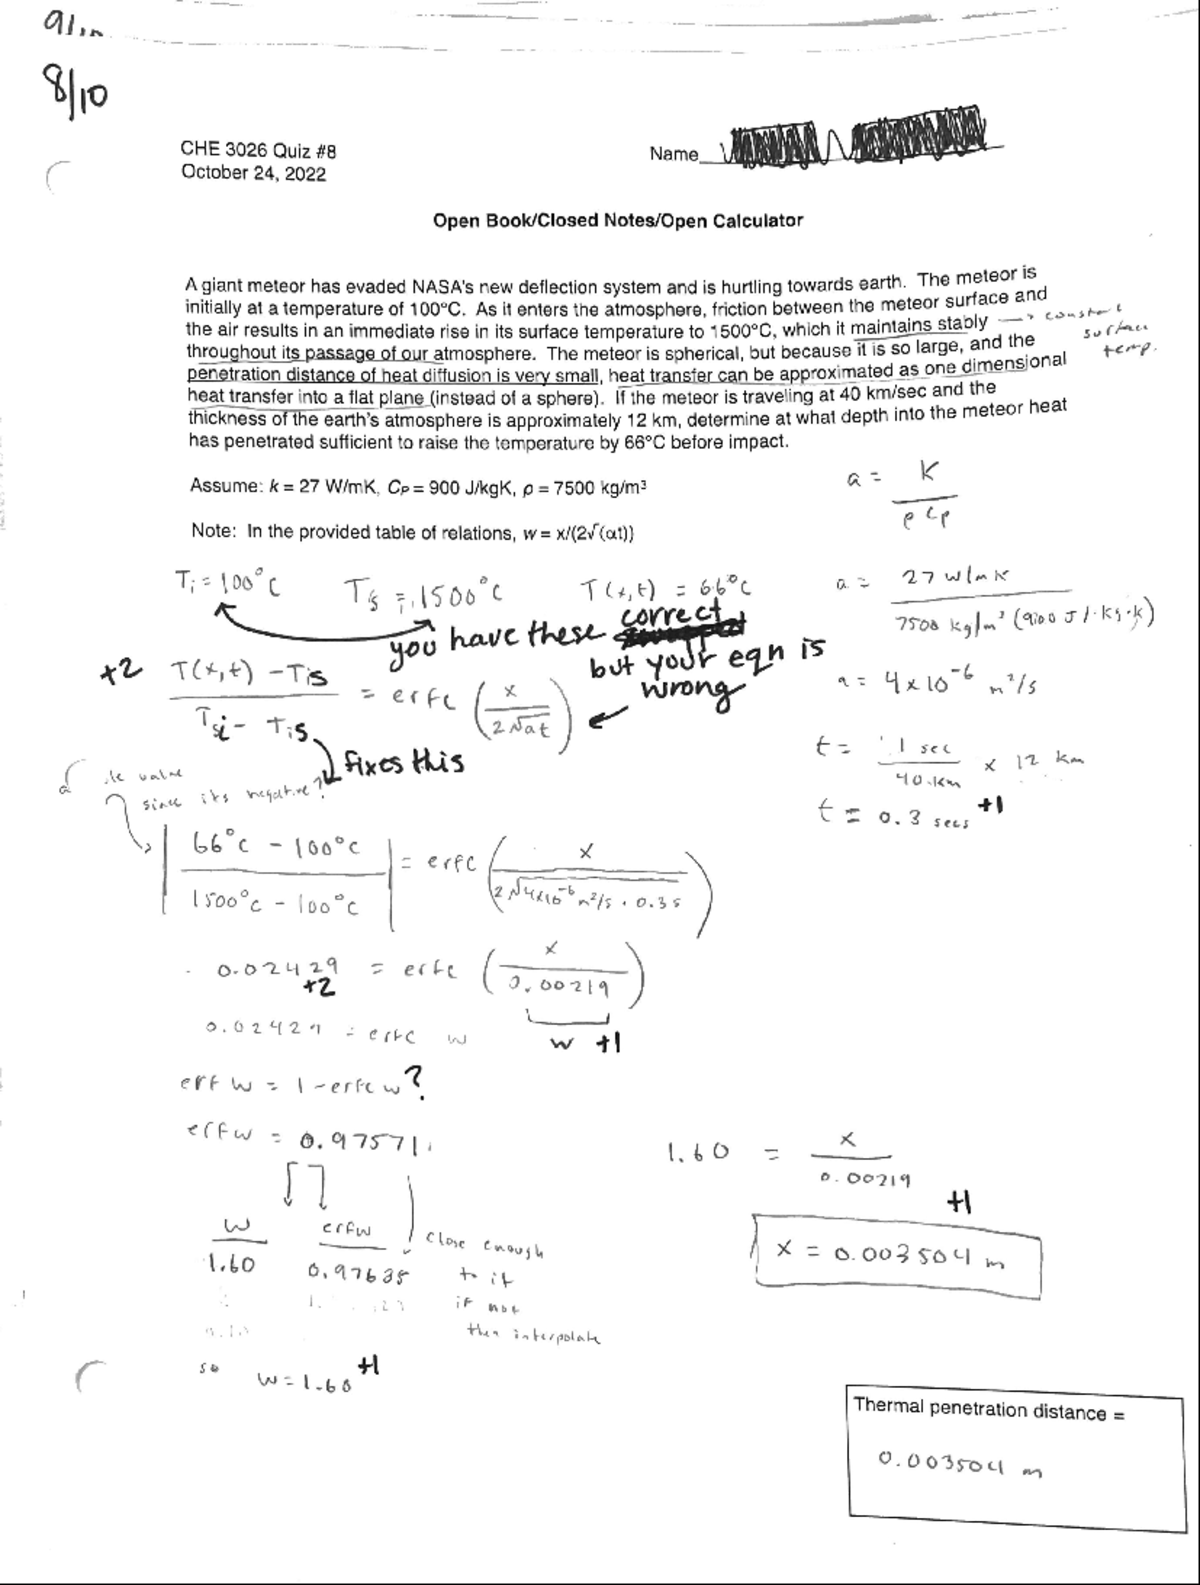 8/10
CHE 3026 Quiz #8
October 24, 2022
Name
Open Book/Closed Notes/Open Calculator
A giant meteor has evaded NASA's new deflection system and is hurtling towards earth. The meteor is
initially at a temperature of 100°C. As it enters the atmosphere, friction between the meteor surface and
the air results in an immediate rise in its surface temperature to 1500°C, which it maintains stably → constant surface temp.
throughout its passage of our atmosphere. The meteor is spherical, but because it is so large, and the
penetration distance of heat diffusion is very small, heat transfer can be approximated as one dimensional
heat transfer into a flat plane (instead of a sphere). If the meteor is traveling at 40 km/sec and the
thickness of the earth's atmosphere is approximately 12 km, determine at what depth into the meteor heat
has penetrated sufficient to raise the temperature by 66°C before impact.
Assume: k = 27 W/mK, CP = 900 J/kgK, ρ = 7500 kg/m³
Note: In the provided table of relations, w = x/(2√(αt))
a = K / ρ Cp
a = 27 W/mK / 7500 kg/m³ (900 J/kg·K)
a = 4 x 10⁻⁶ m²/s
t = 1 sec / 40 km x 12 km
t = 0.3 secs +1
Ti = 100°C Ts = 1500°C T(x,t) = 66°C
you have these correct
but your eqn is
wrong
+2 T(x,t) - Tis / Tsi - Tis = erfc (x / 2√at)
fixes this
value
since its negative?
| 66°C - 100°C / 1500°C - 100°C | = erfc (x / 2√4x10⁻⁶ m²/s · 0.3s)
0.02429 = erfc (x / 0.00219)
+2
0.02429 = erfc w
w +1
erf w = 1 - erfc w ?
erfw = 0.97571
w erfw
1.60 0.97635
close enough
to it
if not
then interpolate
so w = 1.60 +1
1.60 = x / 0.00219
+1
x = 0.003504 m
Thermal penetration distance =
0.003504 m